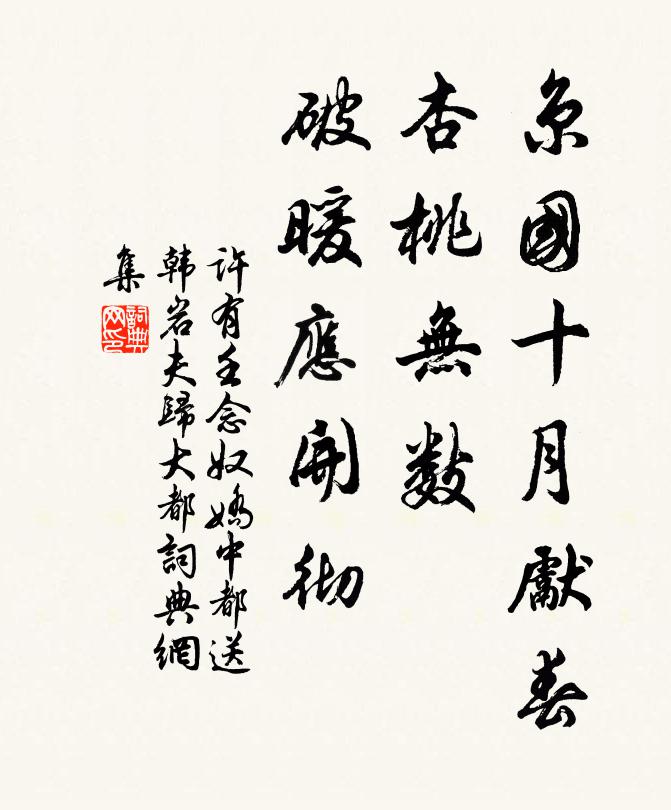 京國十月獻春
杏桃無數
破暖應開彻
许有壬念奴嬌中都送
韩岩夫歸大都詞典網
集
詞典
网印